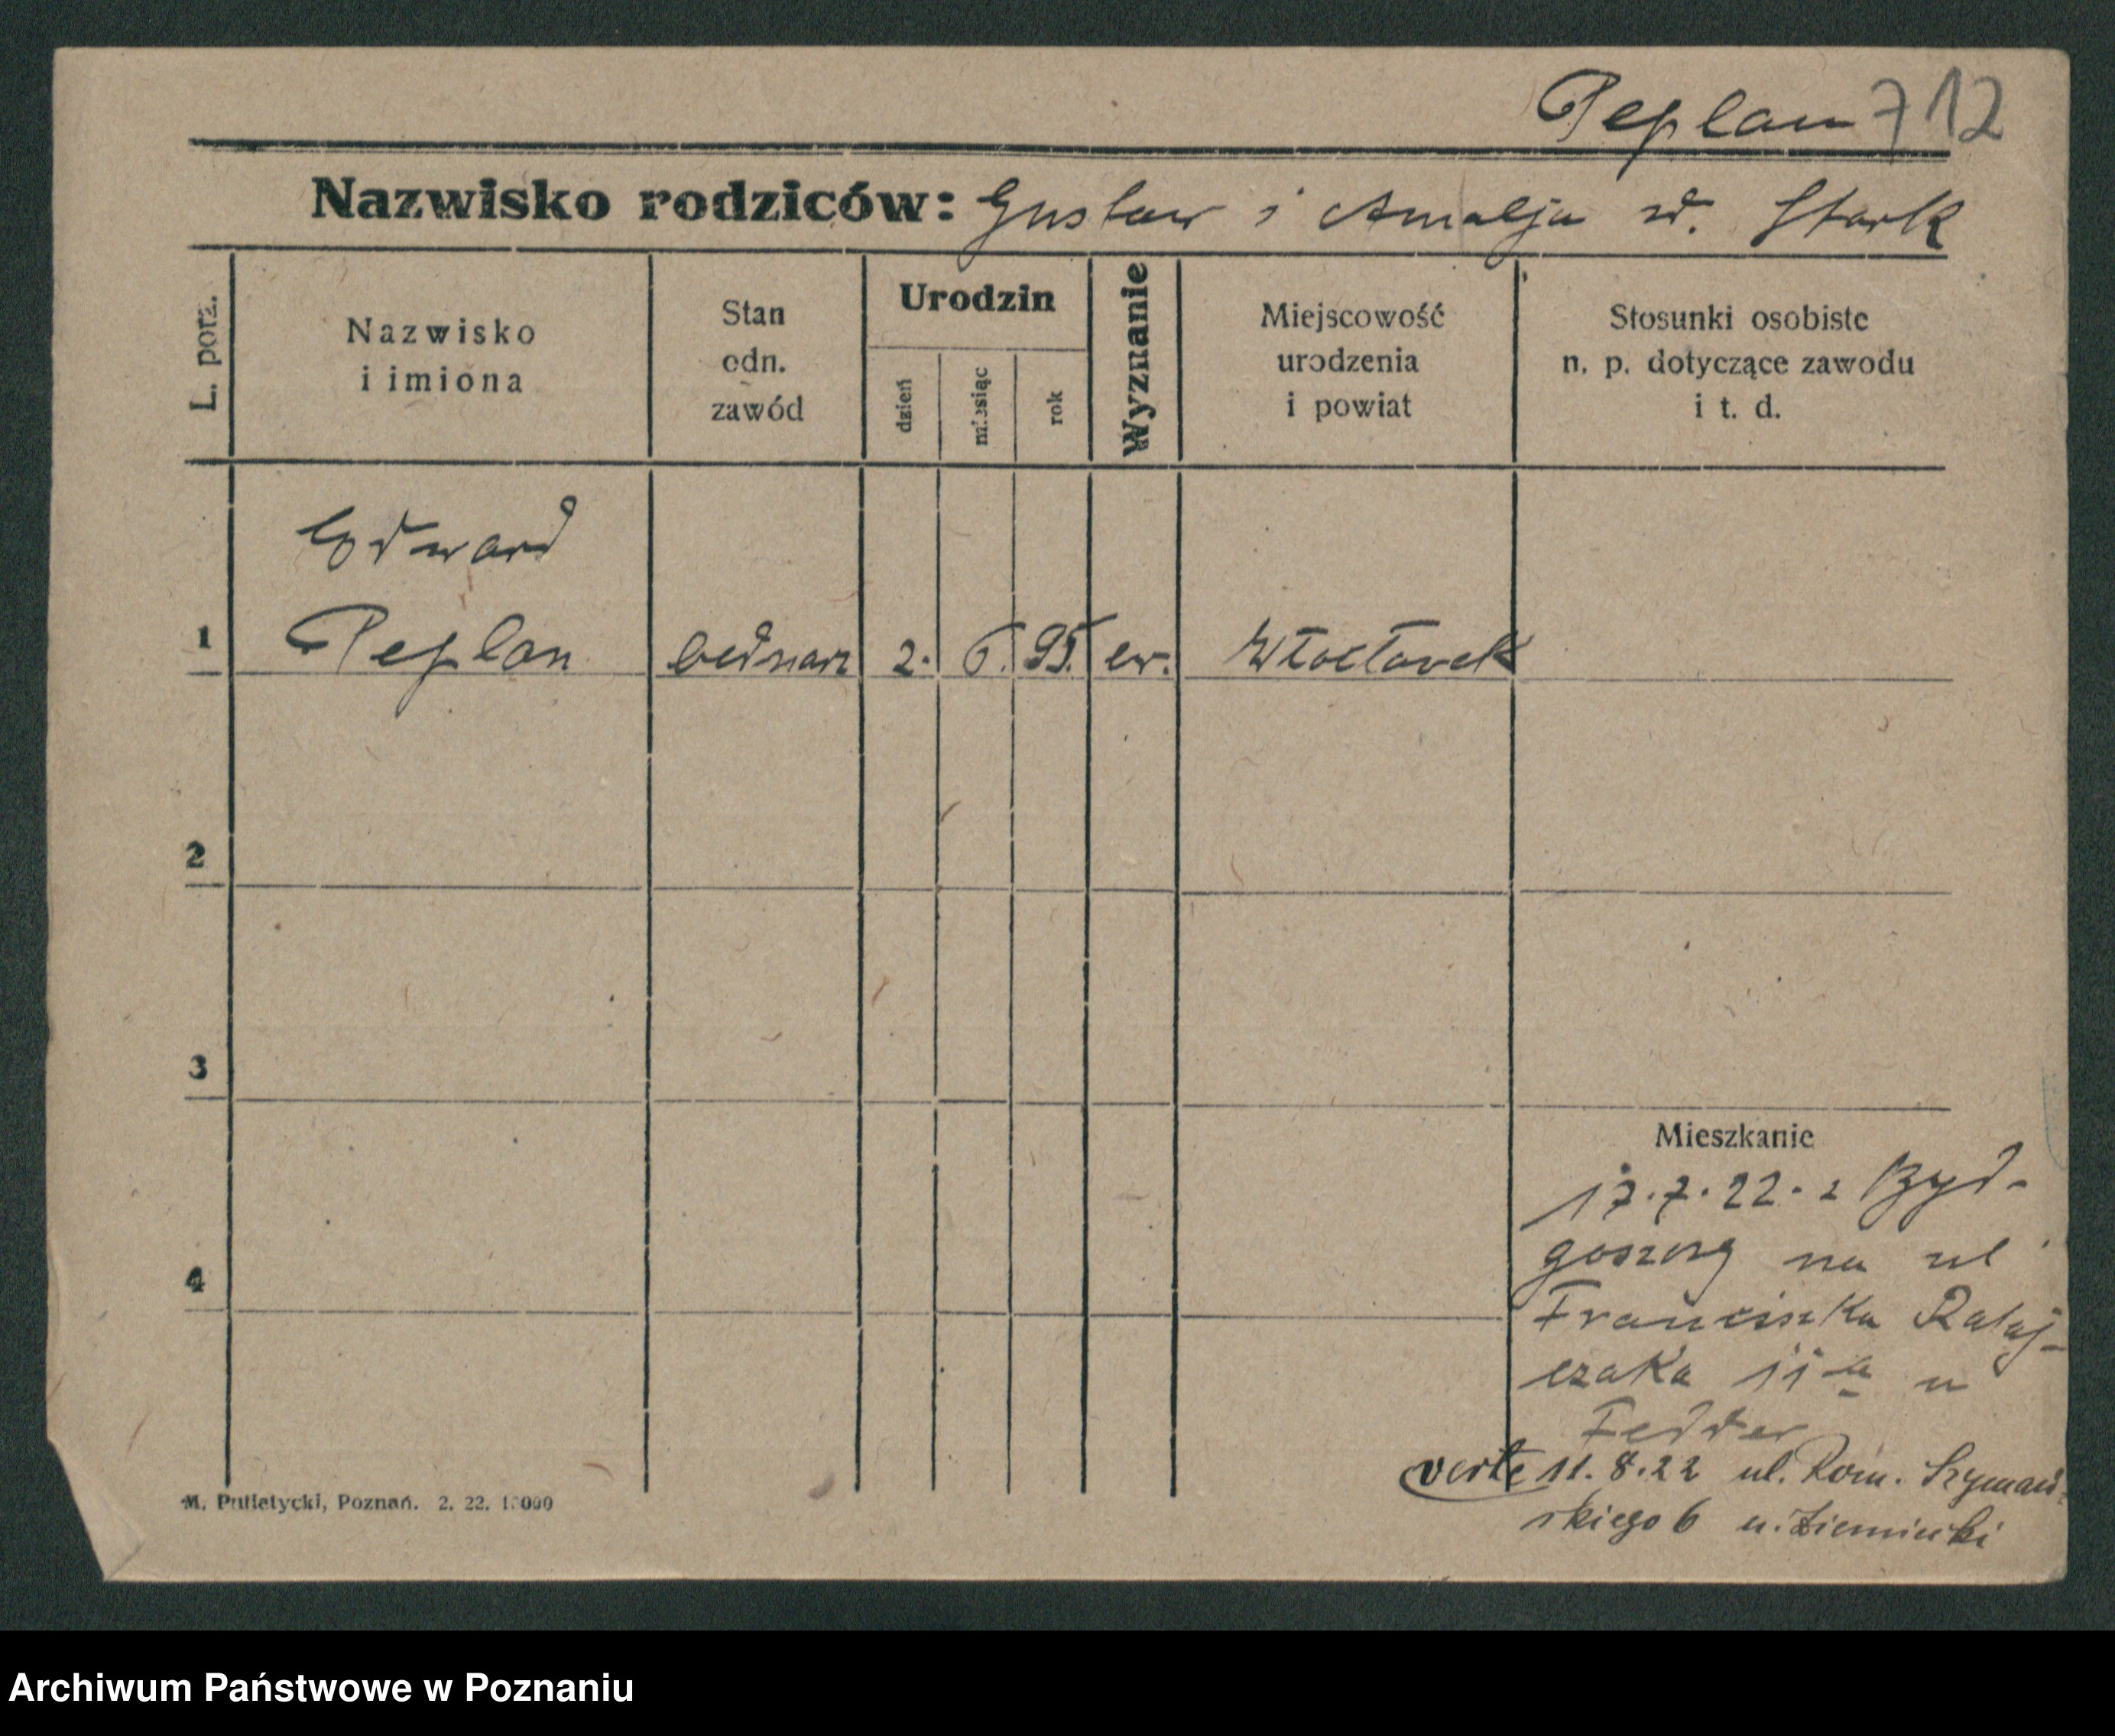 Peplau 712
Nazwisko rodziców: Gustaw i Amalja d. Stark
L. porz.
Nazwisko
i imiona
Stan
odn.
zawód
Urodzin
dzień
miesiąc
rok
Wyznanie
Miejscowość
urodzenia
i powiat
Stosunki osobiste
n. p. dotyczące zawodu
i t. d.
Edward
1 Peplau bednarz 2. 6. 95. ew. Włocławek
2
3
Mieszkanie
17.7.22. z Byd-
goszczy na ul
4
Franciszka Rataj-
czaka 11a u
Fedder
verte 11.8.22 ul. Rom. Szymań-
skiego 6 u.
M. Putiatycki, Poznań. 2. 22.
Archiwum Państwowe w Poznaniu